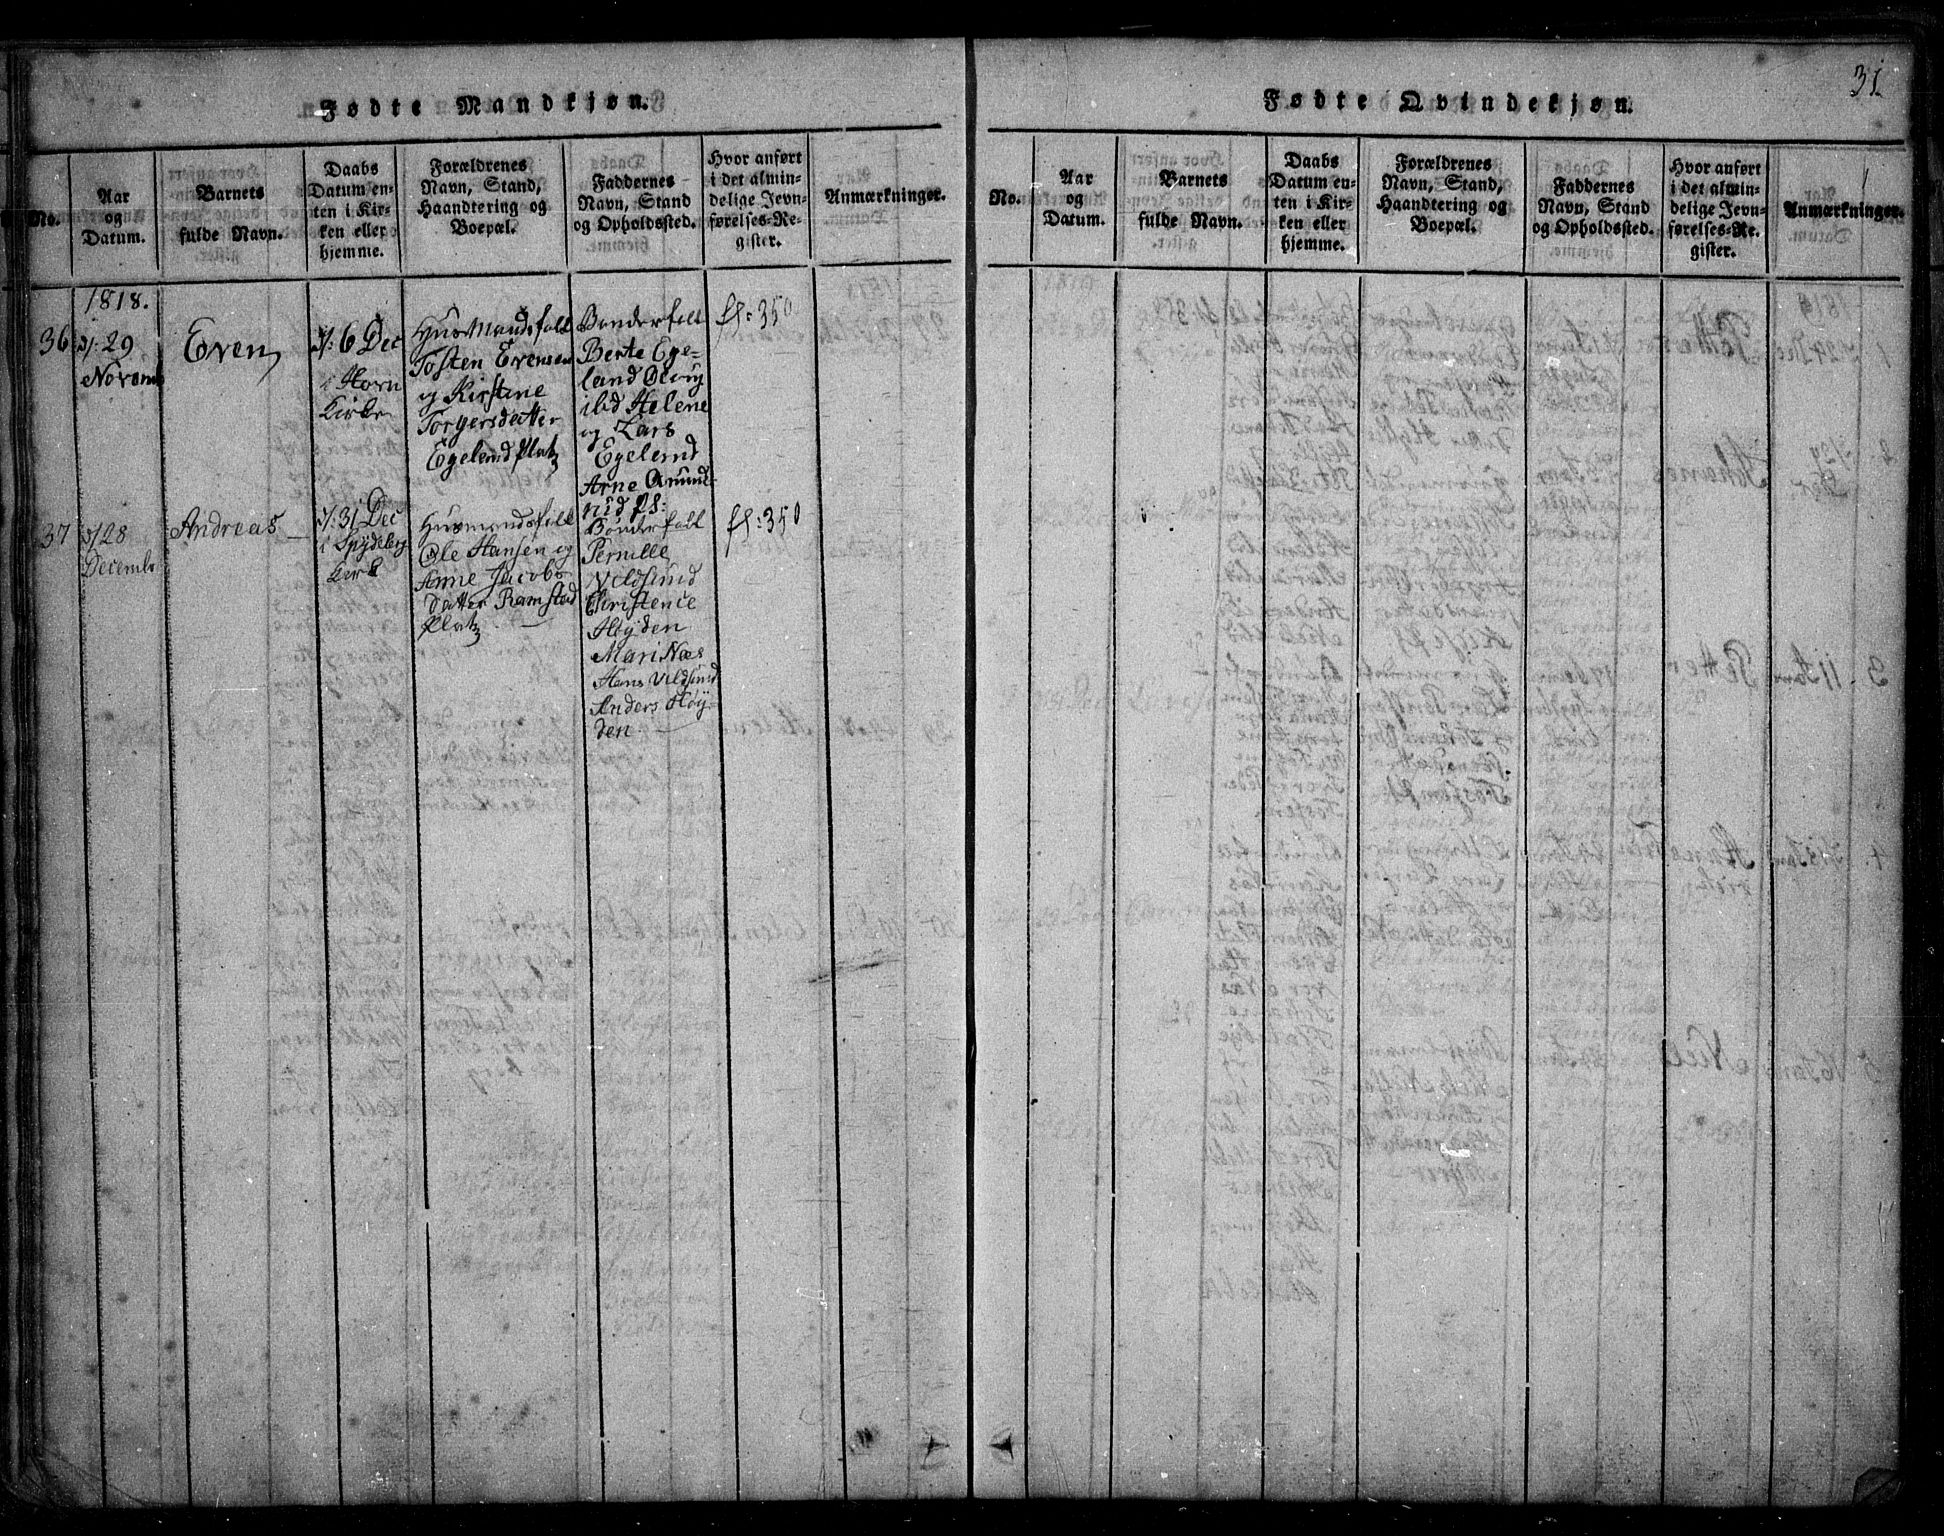 31
Fødte Mandkjøn.
No.
Aar
og
Datum.
Barnets
fulde Navn.
Daabs
Datum en-
ten i Kir-
ken eller
hjemme.
Forældrenes
Navn, Stand,
Haandtering og
Boepæl.
Faddernes
Navn, Stand
og Opholdssted.
Hvor anført
i det almin-
delige Jevn-
førelses-Re-
gister.
Anmærkninger.
1818.
36
29
Novemb
Even
6 Dec
i Hovin
Kirke
Husmandsfolk
Tosten Evensen
og Kirstine
Torgersdatter
Egelund Platz
Bønderfolk
Berte Ege-
land
ibd Helene
og Lars
Egelund
Arne
fl: 350
37
28
Decembr
Andreas
31 Dec
i Spydeberg
Kirk
Husmandsfolk
Ole Hansen og
Anne Jacobs
datter Ramstad
Platz
Bønderfolk
Pernille
Vildsund
Christence
Høyden
Mari Næs
Hans Vildsund
Anders Høy-
den
fl: 350
Fødte Qvindekjøn.
No.
Aar
og
Datum.
Barnets
fulde Navn.
Daabs
Datum en-
ten i Kir-
ken eller
hjemme.
Forældrenes
Navn, Stand,
Haandtering og
Boepæl.
Faddernes
Navn, Stand
og Opholdssted.
Hvor anført
i det almin-
delige Jevn-
førelses-Re-
gister.
Anmærkninger.